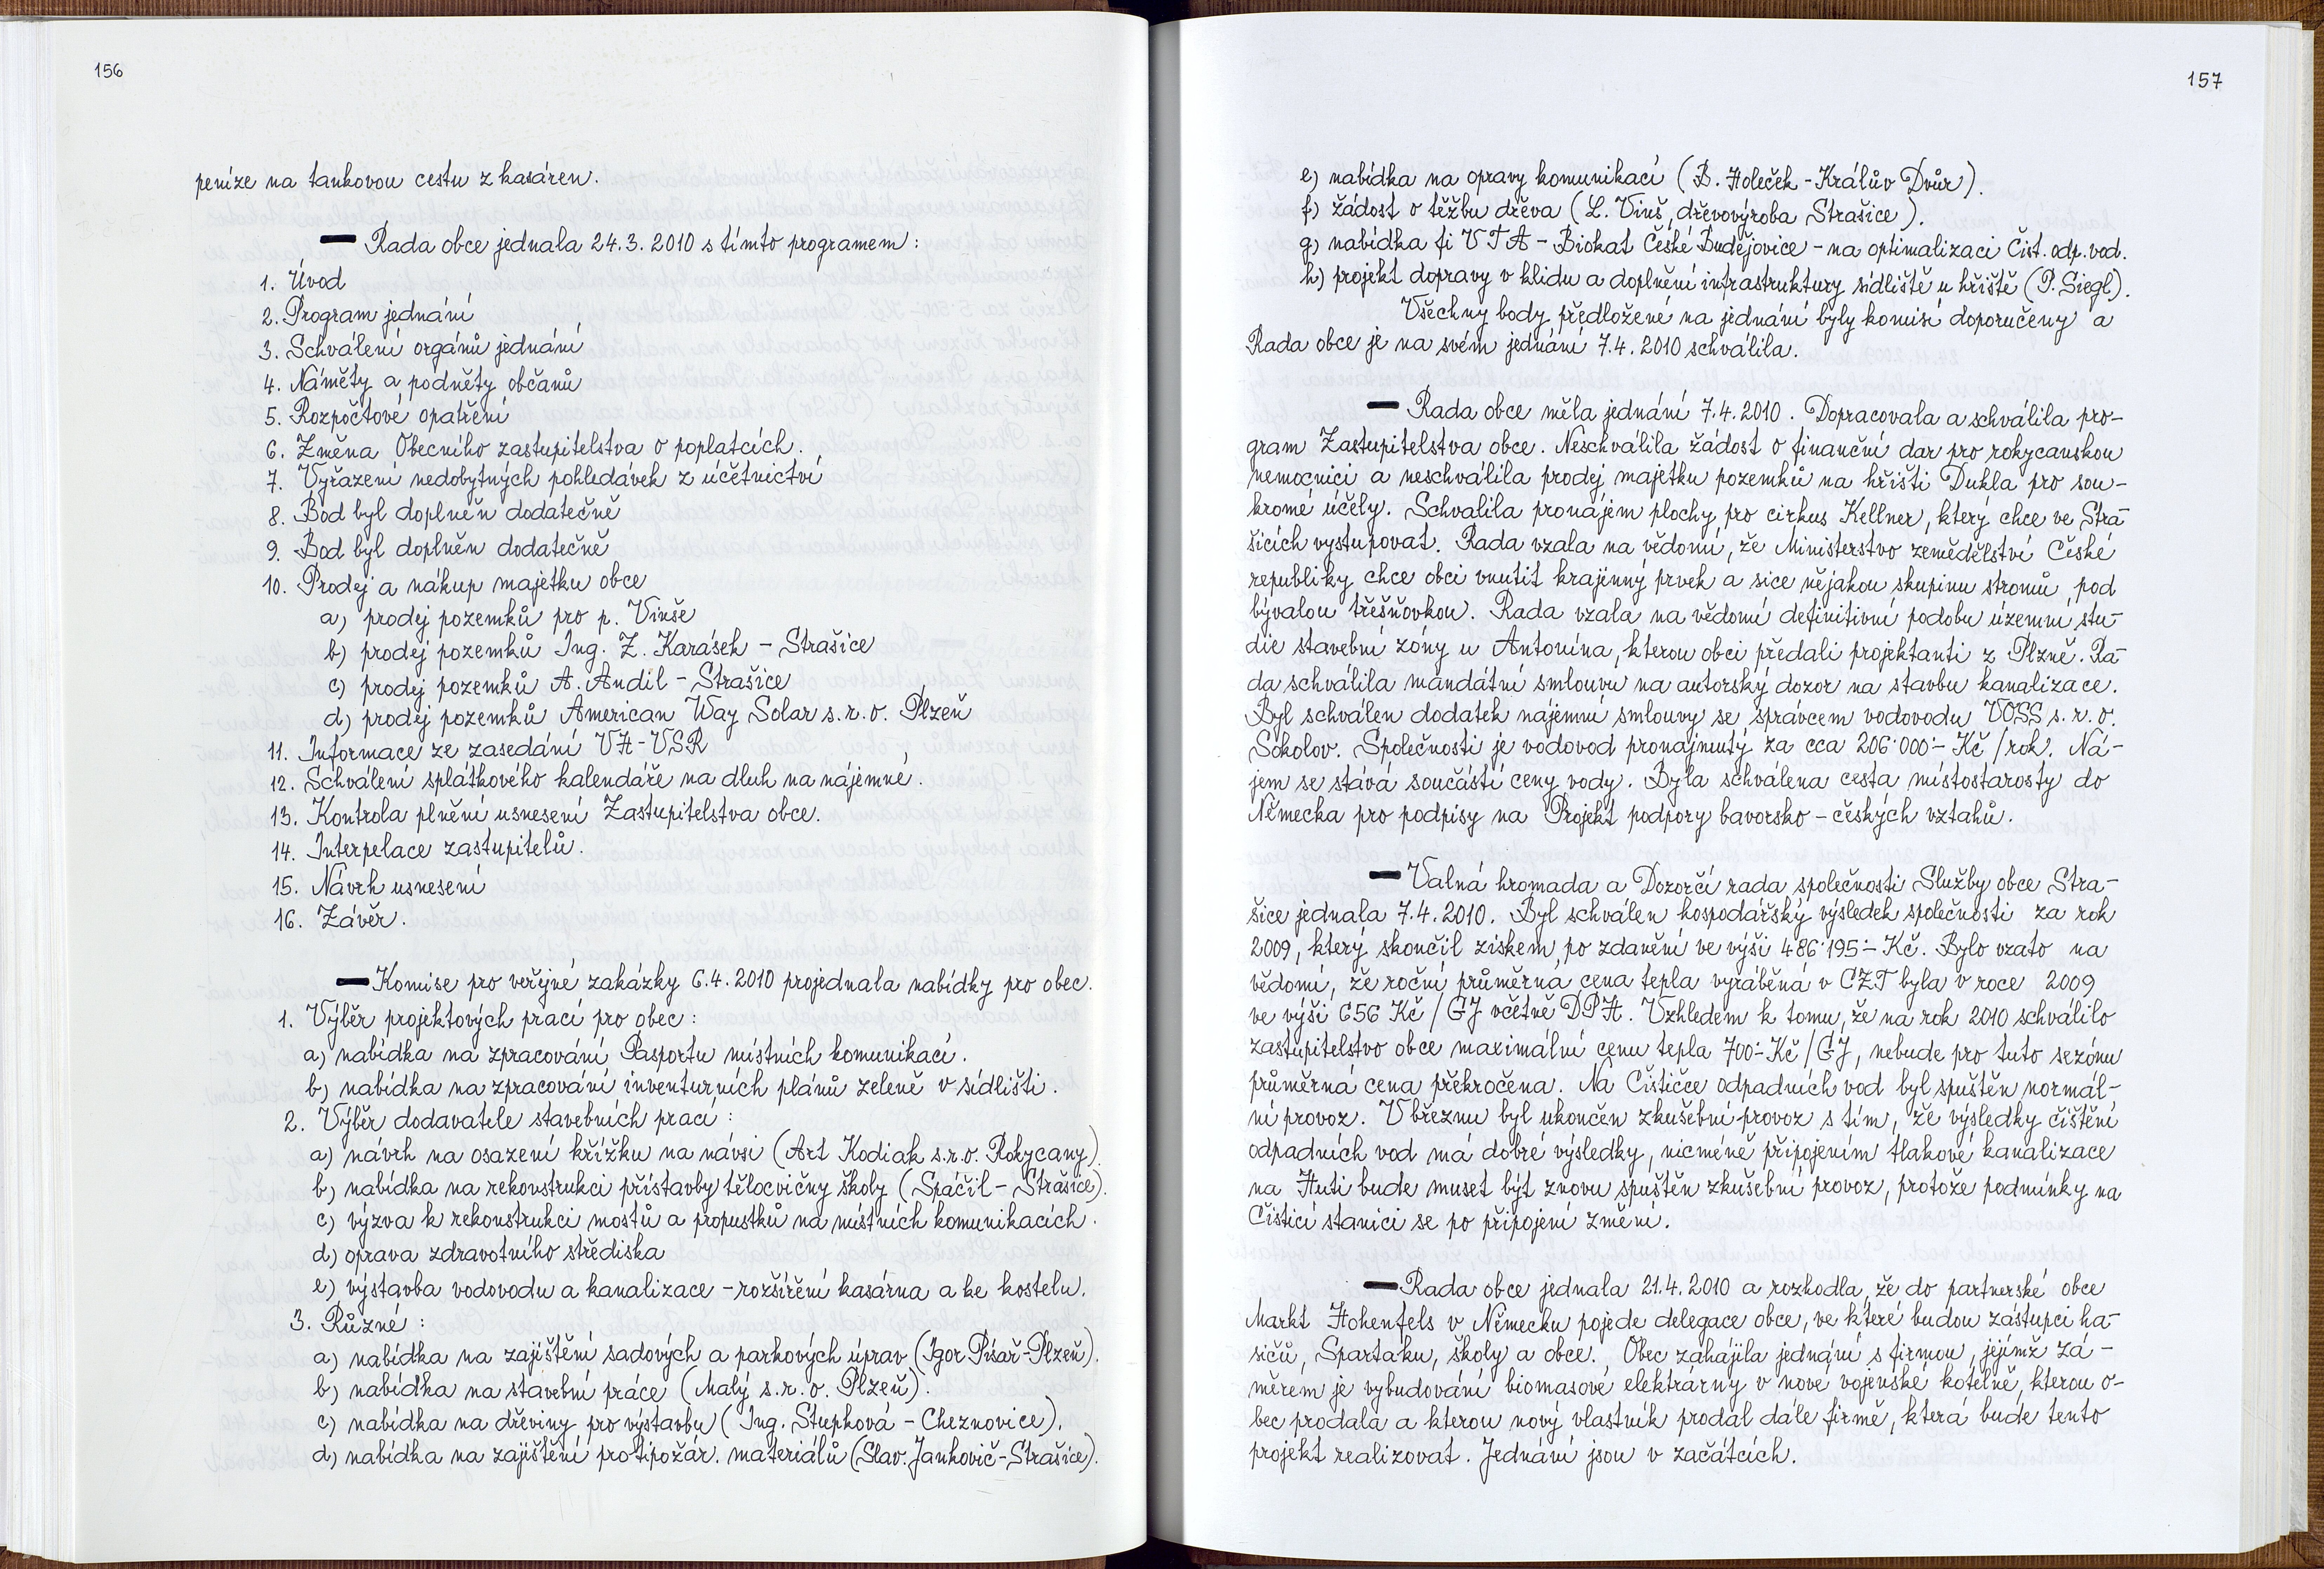 156
peníze na tankovou cestu z kasáren.
— Rada obce jednala 24.3.2010 s tímto programem:
1. Úvod
2. Program jednání
3. Schválení orgánů jednání
4. Náměty a podněty občanů
5. Rozpočtové opatření
6. Změna Obecního zastupitelstva o poplatcích.
7. Vyřazení nedobytných pohledávek z účetnictví
8. Bod byl doplněn dodatečně
9. Bod byl doplněn dodatečně
10. Prodej a nákup majetku obce
a) prodej pozemků pro p. Vinše
b) prodej pozemků Ing. Z. Karásek – Strašice
c) prodej pozemků A. Andil – Strašice
d) prodej pozemků American Way Solar s.r.o. Plzeň
11. Informace ze zasedání VH-VSR
12. Schválení splátkového kalendáře na dluh na nájemné.
13. Kontrola plnění usnesení Zastupitelstva obce.
14. Interpelace zastupitelů.
15. Návrh usnesení
16. Závěr.
— Komise pro veřejné zakázky 6.4.2010 projednala nabídky pro obec.
1. Výběr projektových prací pro obec:
a) nabídka na zpracování Pasportu místních komunikací.
b) nabídka na zpracování inventurních plánů zeleně v sídlišti.
2. Výběr dodavatele stavebních prací:
a) návrh na osazení křížku na návsi (Art Kodiak s.r.o. Rokycany).
b) nabídka na rekonstrukci přístavby tělocvičny školy (Spáčil – Strašice).
c) výzva k rekonstrukci mostů a propustků na místních komunikacích.
d) oprava zdravotního střediska
e) výstavba vodovodu a kanalizace – rozšíření kasárna a ke kostelu.
3. Různé:
a) nabídka na zajištění sadových a parkových úprav (Igor Písař-Plzeň).
b) nabídka na stavební práce (Malý s.r.o. Plzeň).
c) nabídka na dřeviny pro výstavbu (Ing. Stupková – Cheznovice).
d) nabídka na zajištění protipožár. materiálů (Slav. Jankovič-Strašice).
157
e) nabídka na opravy komunikací (B. Holeček – Králův Dvůr).
f) žádost o těžbu dřeva (L. Vinš, dřevovýroba Strašice).
g) nabídka fi VTA – Biokat České Budějovice – na optimalizaci Čist. odp. vod.
h) projekt dopravy v klidu a doplnění infrastruktury sídliště u hřiště (P. Siegl).
Všechny body předložené na jednání byly komisí doporučeny a
Rada obce je na svém jednání 7.4.2010 schválila.
— Rada obce měla jednání 7.4.2010. Dopracovala a schválila pro-
gram Zastupitelstva obce. Neschválila žádost o finanční dar pro rokycanskou
nemocnici a neschválila prodej majetku pozemků na hřišti Dukla pro sou-
kromé účely. Schválila pronájem plochy pro cirkus Kellner, který chce ve Stra-
šicích vystupovat. Rada vzala na vědomí, že Ministerstvo zemědělství České
republiky chce obci vnutit krajinný prvek a sice nějakou skupinu stromů, pod
bývalou třešňovkou. Rada vzala na vědomí definitivní podobu územní stu-
die stavební zóny u Antonína, kterou obci předali projektanti z Plzně. Ra-
da schválila mandátní smlouvu na autorský dozor na stavbu kanalizace.
Byl schválen dodatek nájemní smlouvy se správcem vodovodu VOSS s.r.o.
Sokolov. Společnosti je vodovod pronajmutý za cca 206·000·- Kč/rok. Ná-
jem se stává součástí ceny vody. Byla schválena cesta místostarosty do
Německa pro podpisy na Projekt podpory bavorsko – českých vztahů.
— Valná hromada a Dozorčí rada společnosti Služby obce Stra-
šice jednala 7.4.2010. Byl schválen hospodářský výsledek společnosti za rok
2009, který skončil ziskem, po zdanění ve výši 486·195·- Kč. Bylo vzato na
vědomí, že roční průměrná cena tepla vyráběná v CZT byla v roce 2009
ve výši 656 Kč/GJ včetně DPH. Vzhledem k tomu, že na rok 2010 schválilo
zastupitelstvo obce maximální cenu tepla 700·- Kč/GJ, nebude pro tuto sezónu
průměrná cena překročena. Na Čističce odpadních vod byl spuštěn normál-
ní provoz. V březnu byl ukončen zkušební provoz s tím, že výsledky čištění
odpadních vod má dobré výsledky, nicméně připojením tlakové kanalizace
na Huti bude muset být znovu spuštěn zkušební provoz, protože podmínky na
Čistící stanici se po připojení změní.
— Rada obce jednala 21.4.2010 a rozhodla, že do partnerské obce
Markt Hohenfels v Německu pojede delegace obce, ve které budou zástupci ha-
sičů, Spartaku, školy a obce. Obec zahájila jednání s firmou, jejímž zá-
měrem je vybudování biomasové elektrárny v nové vojenské kotelně, kterou o-
bec prodala a kterou nový vlastník prodal dále firmě, která bude tento
projekt realizovat. Jednání jsou v začátcích.